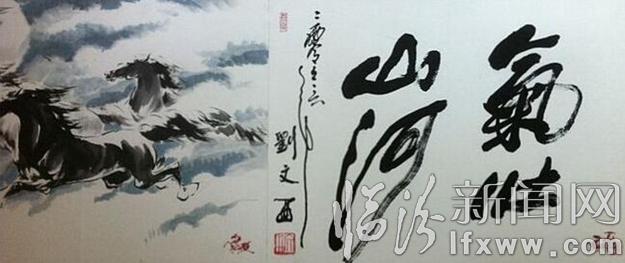 氣壮
山河
二零一六
劉文西
临汾新闻网
lfxww.com